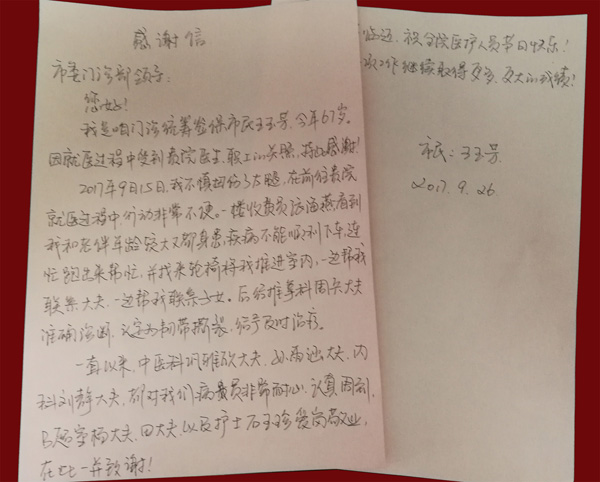 感谢信
市委门诊部领导:
您好!
我是咱门诊统筹签保市民王玉芳,今年67岁。
因就医过程中受到贵院医生、职工的关照,特此感谢!
2017年9月15日,我不慎扭伤了大腿,在前往贵院
就医过程中,行动非常不便。一楼收费员 海燕看到
我和老伴年龄较大又都身患疾病不能顺利下车,连
忙跑出来帮忙,并找来轮椅将我推进室内,一边帮我
联系大夫,一边帮我联系子女。后经推拿科周兵大夫
准确诊断,认定为韧带撕裂,给予及时治疗。
一直以来,中医科 雅欣大夫、 大夫、内
科刘静大夫,都对我们病患员非常耐心、认真周到,
B超室杨大夫、田大夫,以及护士石玉珍爱岗敬业,
在此一并致谢!
临近,祝全院医护人员节日快乐!
工作继续取得更多、更大的成绩!
市民:王玉芳
2017.9.26.